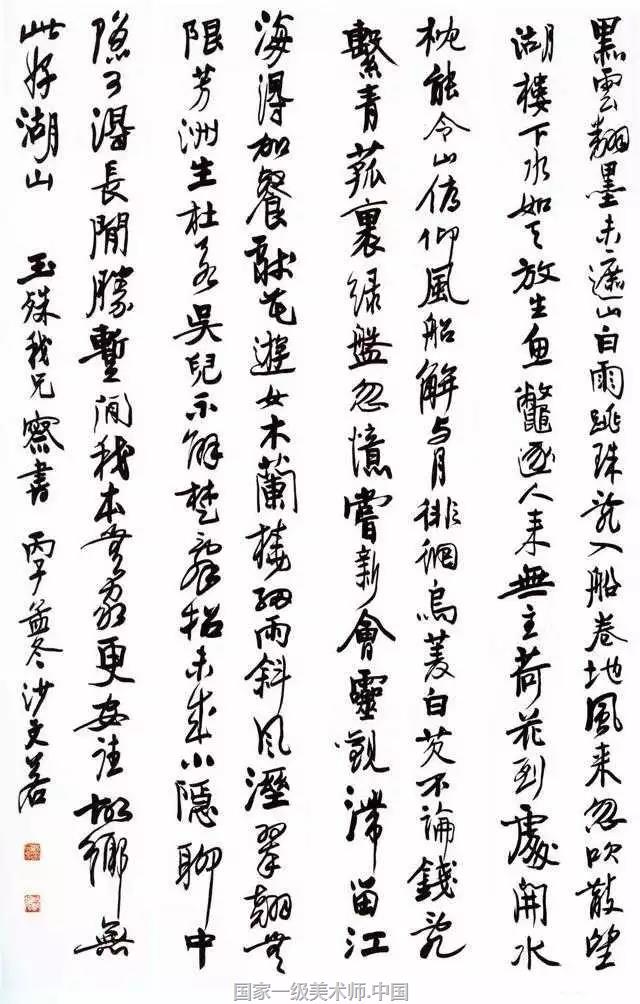 黑雲翻墨未遮山白雨跳珠亂入船卷地風来忽吹散望
湖樓下水如天放生魚鼈逐人来無主荷花到處開水
枕能令山俯仰風船解与月徘徊烏菱白芡不論錢亂
繫青菰裹绿盤忽憶嘗新會靈觀滯留江
海得加餐献花遊女木蘭橈細雨斜風溼翠翹無
限芳洲生杜若吳兒不解楚辭招未成小隱聊中
隱可得長閒勝暫閒我本無家更安往故鄉無
此好湖山 玉殊我兄察書 丙子孟冬沙文若
国家一级美术师.中国